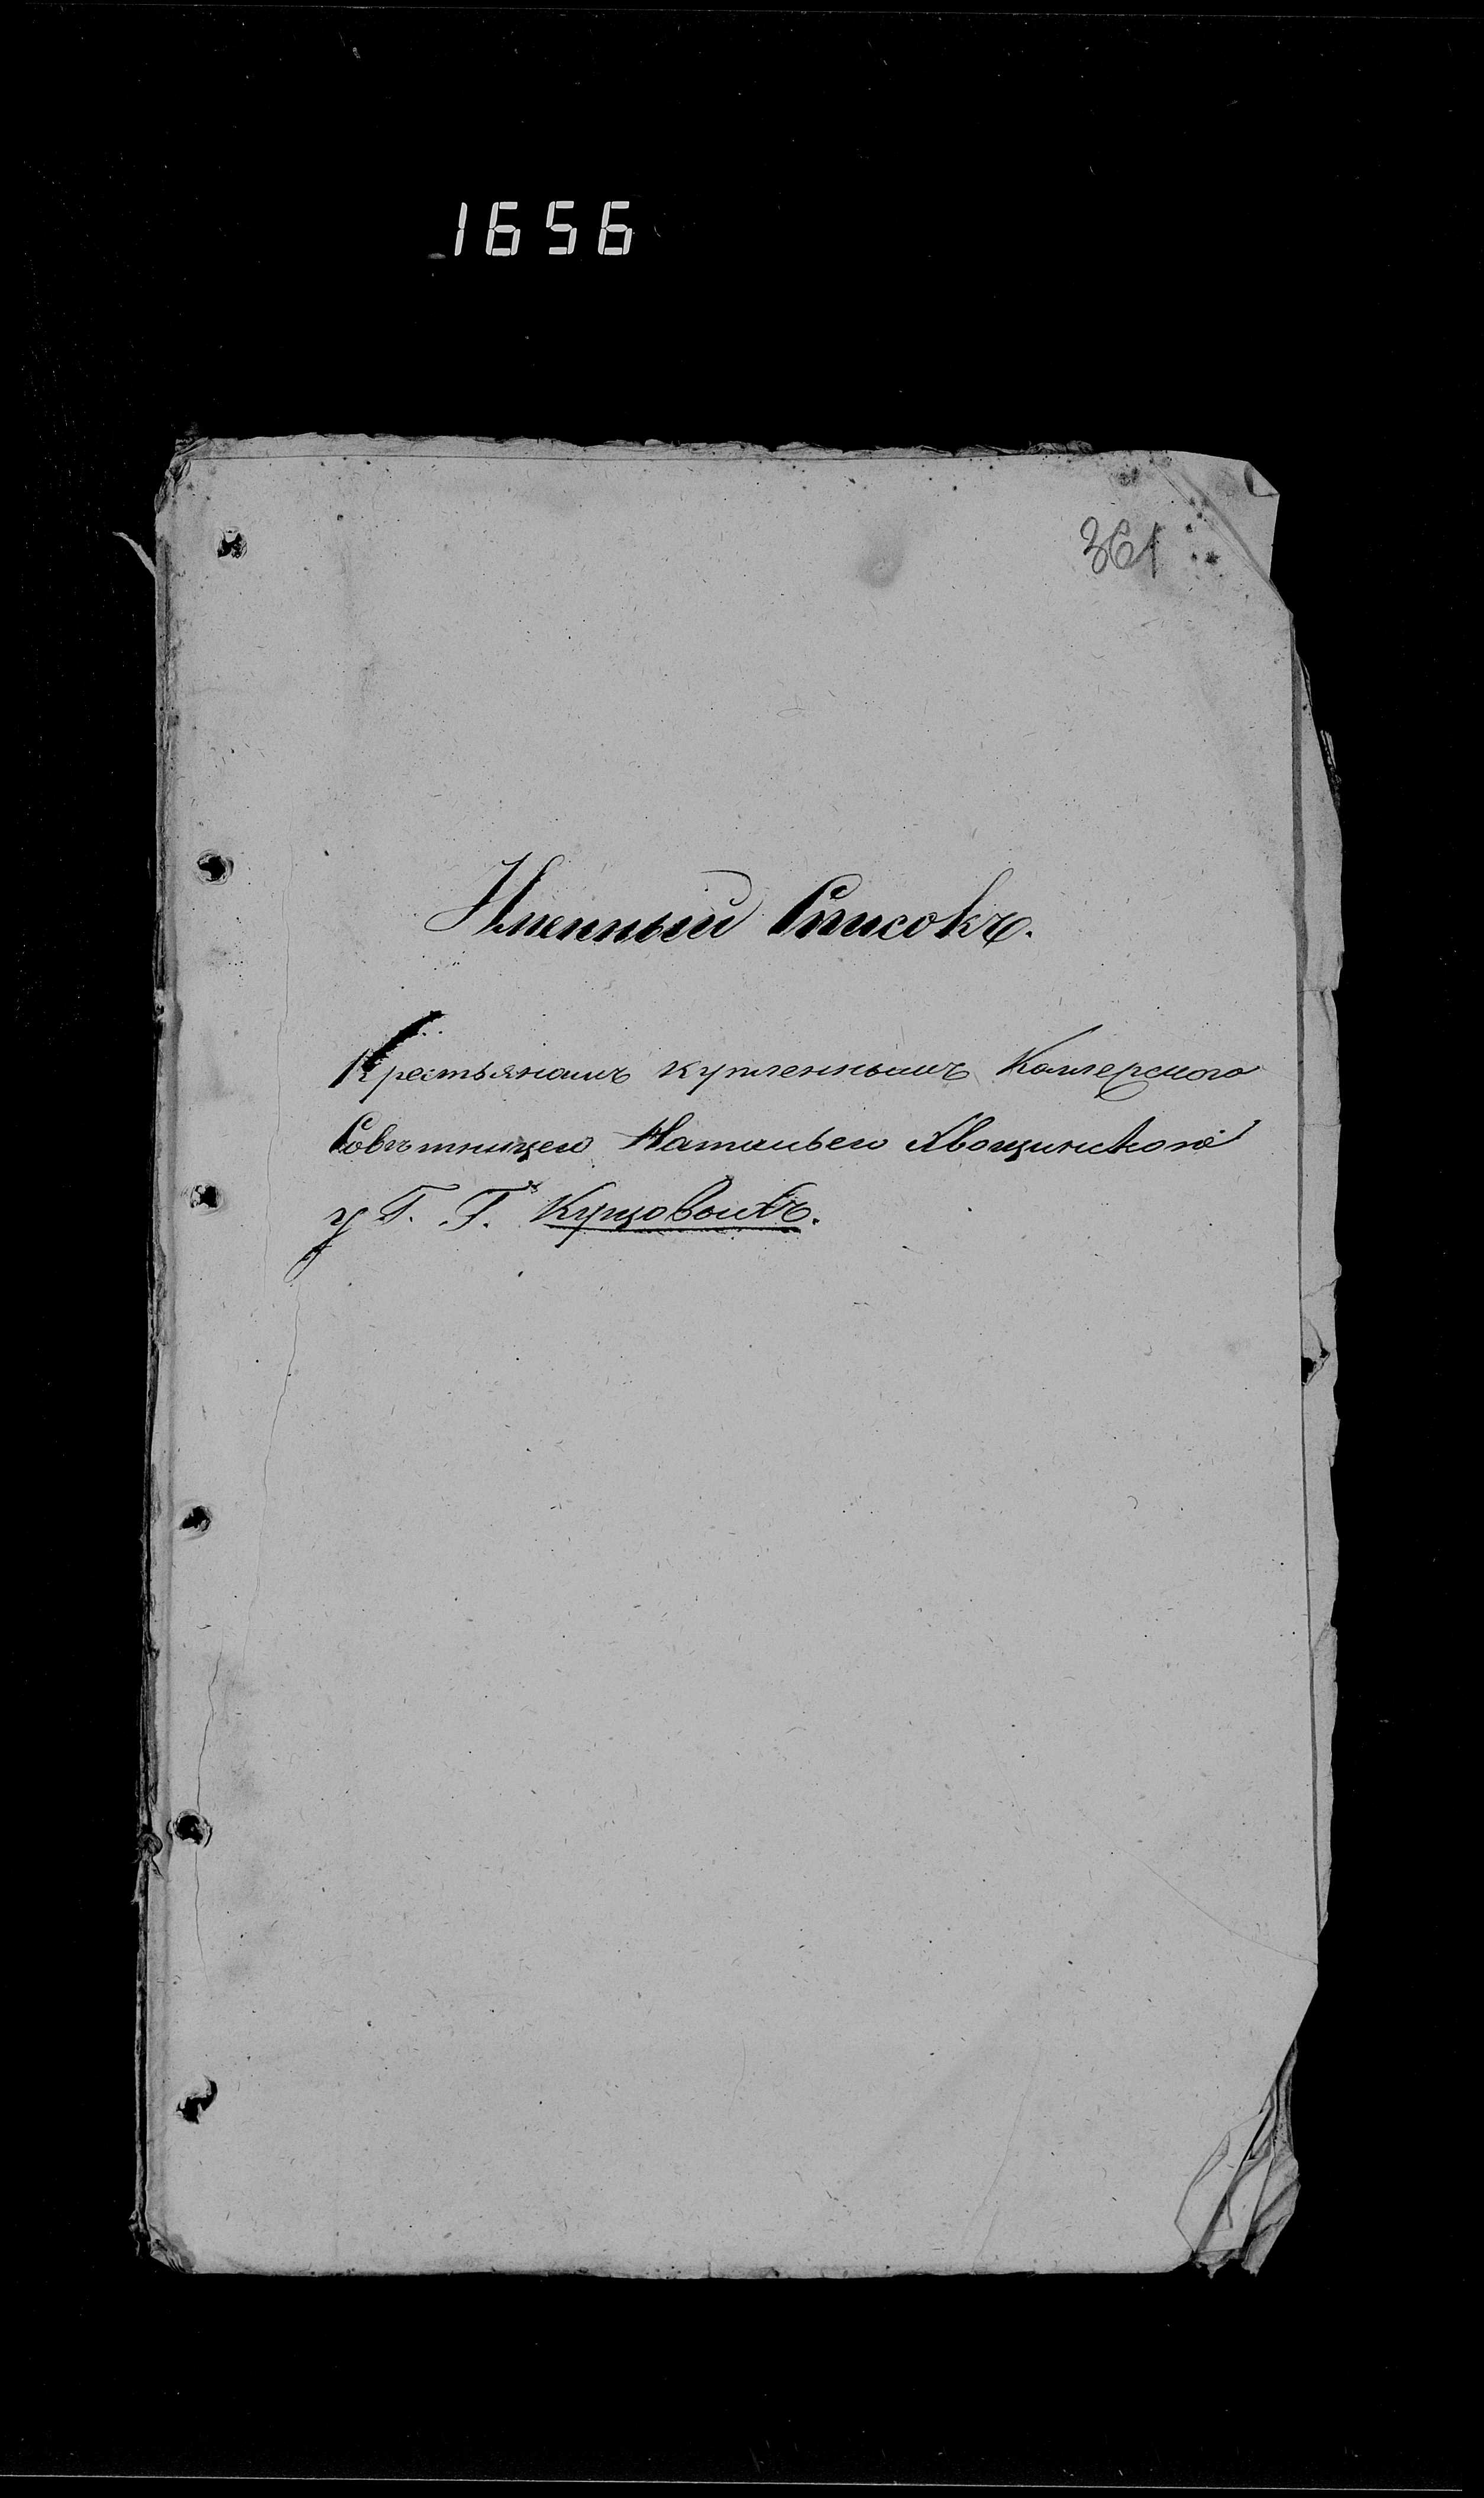 1656
361
Именный Списокъ.
Крестьянамъ купленнымъ Камерскою
Совѣтницею Натальею Хвощинскою
у Г. Г. Купцовыхъ.